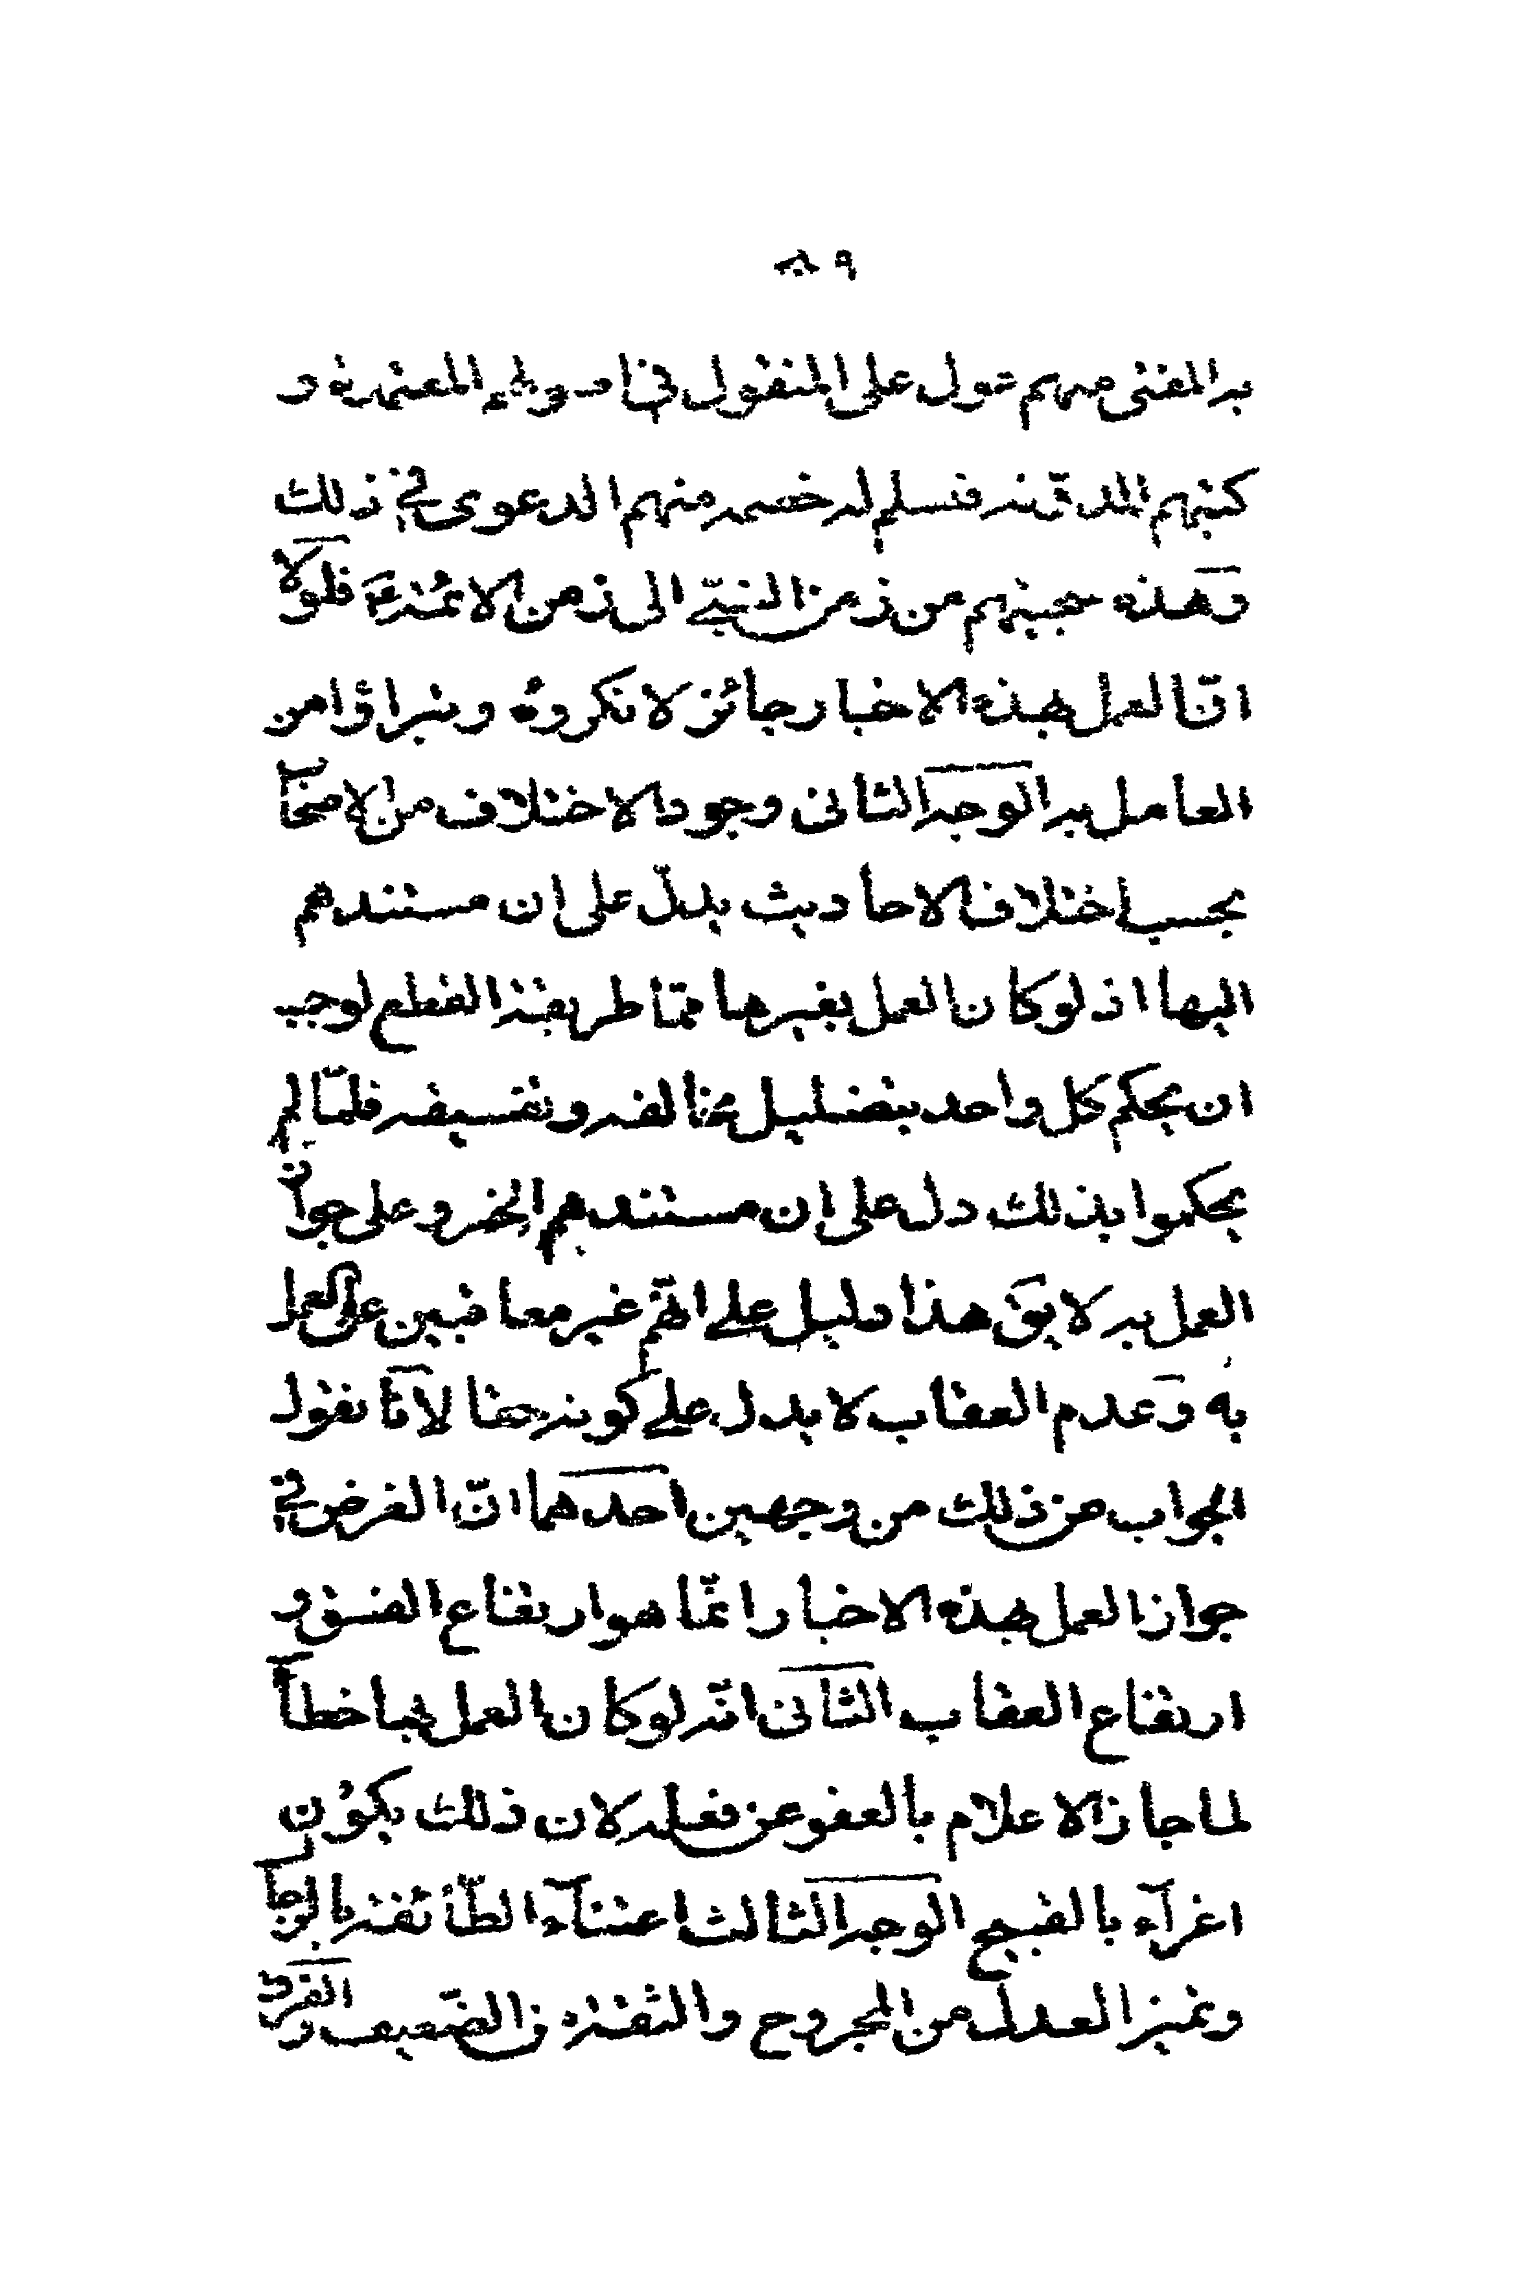 ٨٩
به المفتى منهم عول على المنقول فى اصولهم المعتمدة و
كتبهم المدوّنة فسلم له خصمه منهم الدعوى فى ذلك
وهذه سجيتهم من زمن النبىّ الى زمن الائمّة ع فلولا
انّ العمل بهذه الاخبار جائز لانكروه وتبراؤا من
العامل به الوجه الثانى وجود الاختلاف من الاصحاب
بحسب اختلاف الاحاديث يدلّ على ان مستندهم
اليها اذ لو كان العمل بغيرها ممّا طريقة القطع لوجب
ان يحكم كل واحد بتضليل مخالفه وتفسيقه فلمّا لم
يحكموا بذلك دل على ان مستندهم الخبر وعلى جواز
العمل به لا يق هذا دليل على انّهم غير معاقبين على العمل
به وعدم العقاب لا يدل على كونه حقا لانّا نقول
الجواب عن ذلك من وجهين احدهما انّ الغرض فى
جواز العمل بهذه الاخبار انّما هو ارتفاع الفسق و
ارتفاع العقاب الثانى انّه لو كان العمل بها خطأ
لما جاز الاعلام بالعفو عن فعله لان ذلك يكون
اغرآء بالقبيح الوجه الثالث اعتنآء الطّائفة بالرجال
وتميز العدل من المجروح والثقة من الضّعيف والفرق